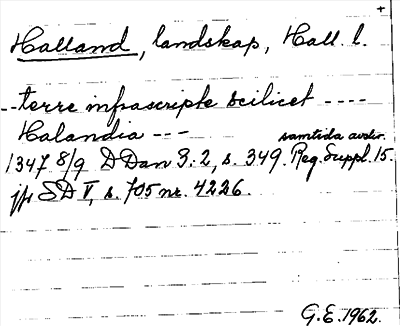 +
Halland, landskap, Hall. l.
--terre infrascripte scilicet ----
Halandia ---
samtida avskr.
1347 8/9 DDan 3:2, s. 349. Reg. Suppl. 15.
jfr SD V, s. 705 nr. 4226.
G.E. 1962.